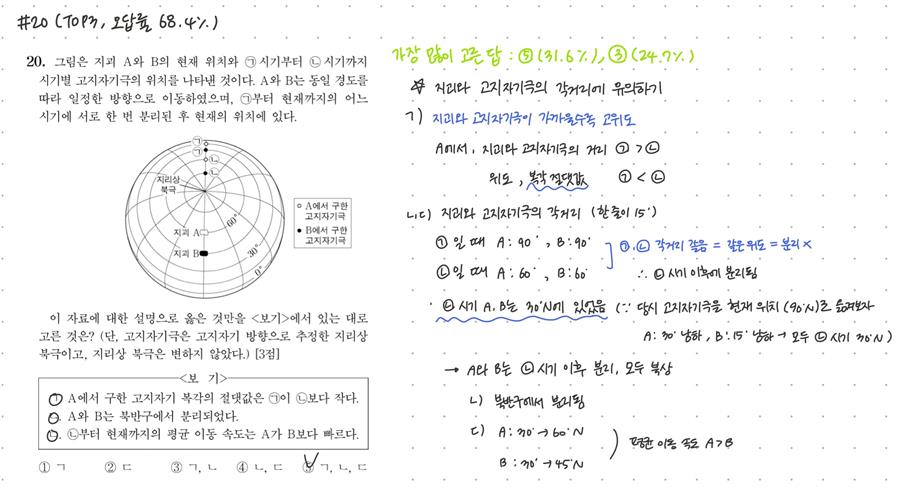 #20 (TOP3, 오답률 68.4%)
20. 그림은 지괴 A와 B의 현재 위치와 ㉠시기부터 ㉡시기까지
시기별 고지자기극의 위치를 나타낸 것이다. A와 B는 동일 경도를
따라 일정한 방향으로 이동하였으며, ㉠부터 현재까지의 어느
시기에 서로 한 번 분리된 후 현재의 위치에 있다.
㉠
㉠
㉡
㉡
지리상
북극
지괴 A
지괴 B
60°
30°
0°
○ A에서 구한
고지자기극
● B에서 구한
고지자기극
이 자료에 대한 설명으로 옳은 것만을 <보기>에서 있는 대로
고른 것은? (단, 고지자기극은 고지자기 방향으로 추정한 지리상
북극이고, 지리상 북극은 변하지 않았다.) [3점]
<보 기>
ㄱ. A에서 구한 고지자기 복각의 절댓값은 ㉠이 ㉡보다 작다.
ㄴ. A와 B는 북반구에서 분리되었다.
ㄷ. ㉡부터 현재까지의 평균 이동 속도는 A가 B보다 빠르다.
① ㄱ ② ㄷ ③ ㄱ, ㄴ ④ ㄴ, ㄷ ⑤ ㄱ, ㄴ, ㄷ
가장 많이 고른 답 : ⑤(31.6%), ③(24.7%)
☆ 지괴와 고지자기극의 각거리에 유의하기
ㄱ) 지괴와 고지자기극이 가까울수록 고위도
A에서, 지괴와 고지자기극의 거리 ㉠ > ㉡
위도, 복각 절댓값 ㉠ < ㉡
ㄴ,ㄷ) 지괴와 고지자기극의 각거리 (한 줄이 15°)
㉠일 때 A : 90°, B : 90°
㉡일 때 A : 60°, B : 60°
㉠, ㉡ 각거리 같음 = 같은 위도 = 분리 X
∴ ㉡ 시기 이후에 분리됨
· ㉡ 시기 A, B는 30°N에 있었음 (∵ 당시 고지자기극을 현재 위치 (90°N)로 옮겨보자
A : 30° 남하, B : 15° 남하 → 모두 ㉡ 시기 30°N)
→ A와 B는 ㉡ 시기 이후 분리, 모두 북상
ㄴ) 북반구에서 분리됨
ㄷ) A : 30 → 60°N
B : 30 → 45°N
평균 이동 속도 A > B